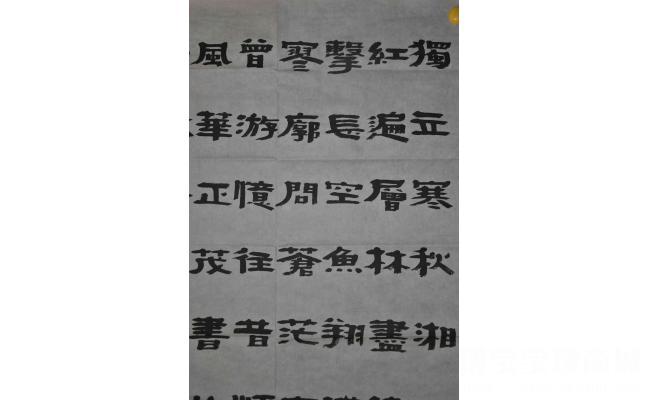 獨立寒秋湘
紅遍層林盡
擊長空魚翔
寥廓問蒼茫
曾游憶往昔
風華正茂書